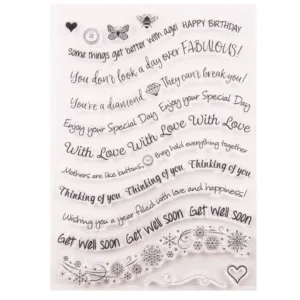 HAPPY BIRTHDAY
Some things get better with age!
You don't look a day over FABULOUS!
You're a diamond They can't break you!
Enjoy your Special Day Enjoy your Special Day
With Love With Love With Love
Mothers are like buttons, they hold everything together
Thinking of you Thinking of you Thinking of you
Wishing you a year filled with love and happiness!
Get well soon Get well soon Get well soon